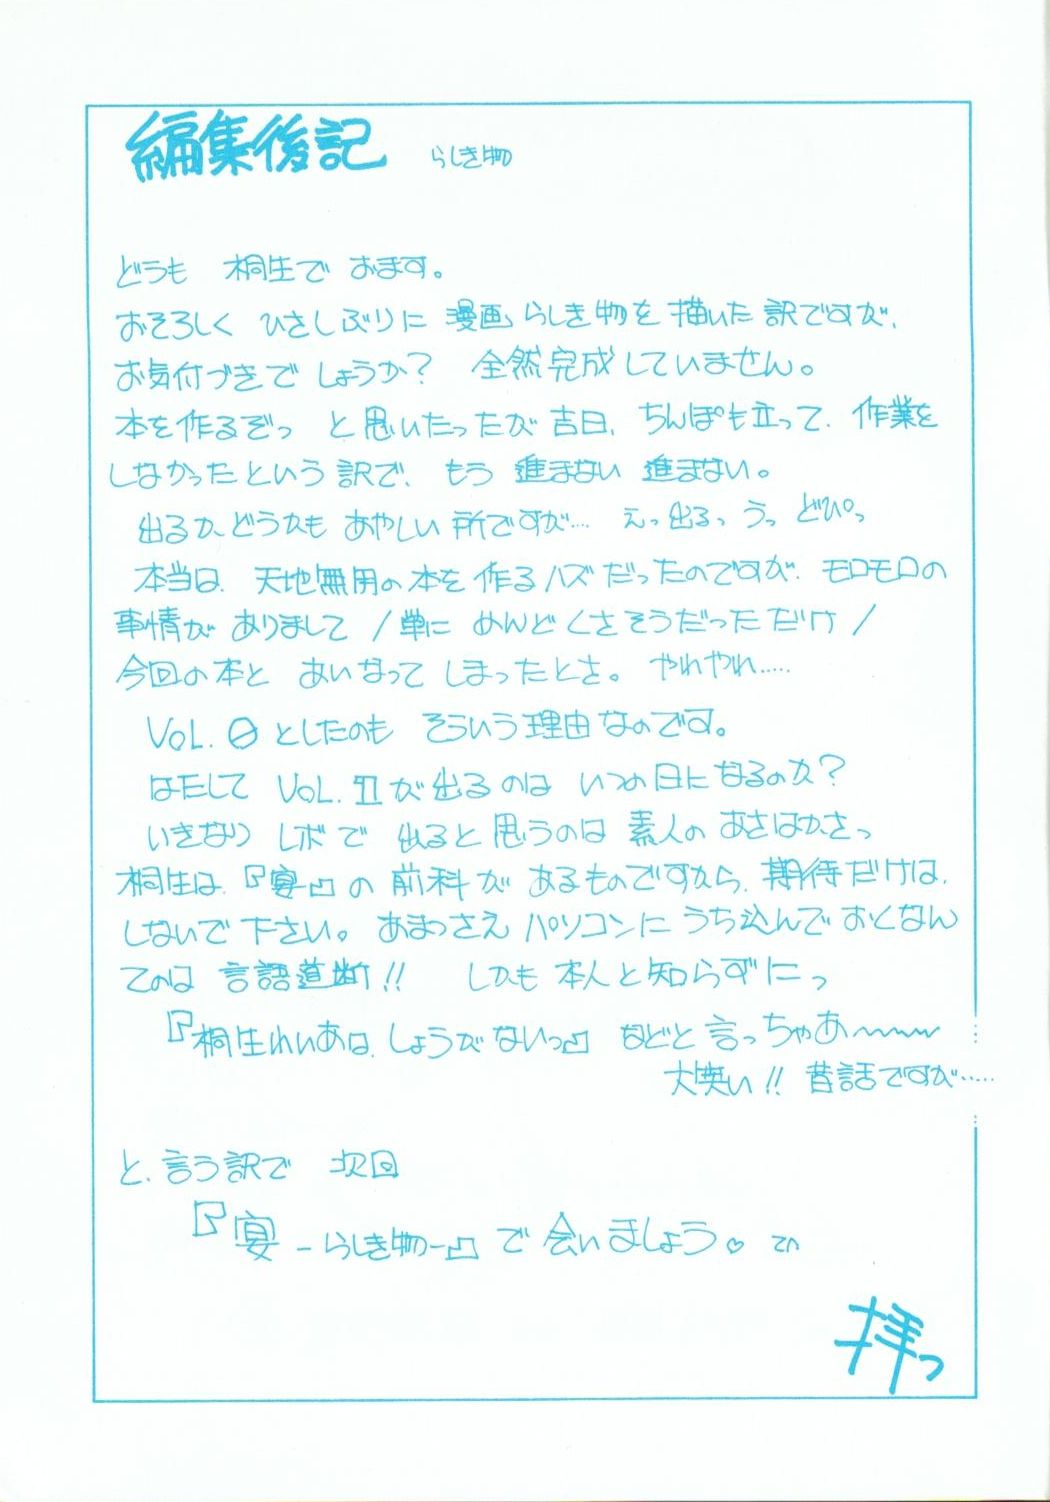 編集後記 らしき物
どうも 桐生で おます。
おそろしく ひさしぶりに 漫画らしき物を 描いた訳ですが、
お気付づきで しょうか? 全然完成していません。
本を作るぞっ と思いたったが吉日、ちんぽも立って、作業を
しなかったという訳で、もう 進まない 進まない。
出るか、どうかも あやしい所ですが… えっ出るっ うっ どぴっ
本当は、天地無用の本を作るハズだったのですが、モロモロの
事情が ありまして/単に めんどくさそうだっただけ/
今回の本と あいなって しまったとさ。 やれやれ……
VOL.0としたのも そういう理由なのです。
はたして VOL.Ⅱが出るのは いつの日になるのか?
いきなり レボで 出ると思うのは 素人の あさはかさっ
桐生は、『宴』の 前科が あるものですから、期待だけは、
しないで下さい。あまつさえ パソコンに うち込んで おくなん
てのは 言語道断!! しかも 本人と知らずにっ
『桐生れいあは、しょうがないっ』 などと言っちゃあ〜〜〜
大笑い!! 昔話ですが……
と、言う訳で 次回
『宴-らしき物-』で 会いましょう♡ てへ
拝っ